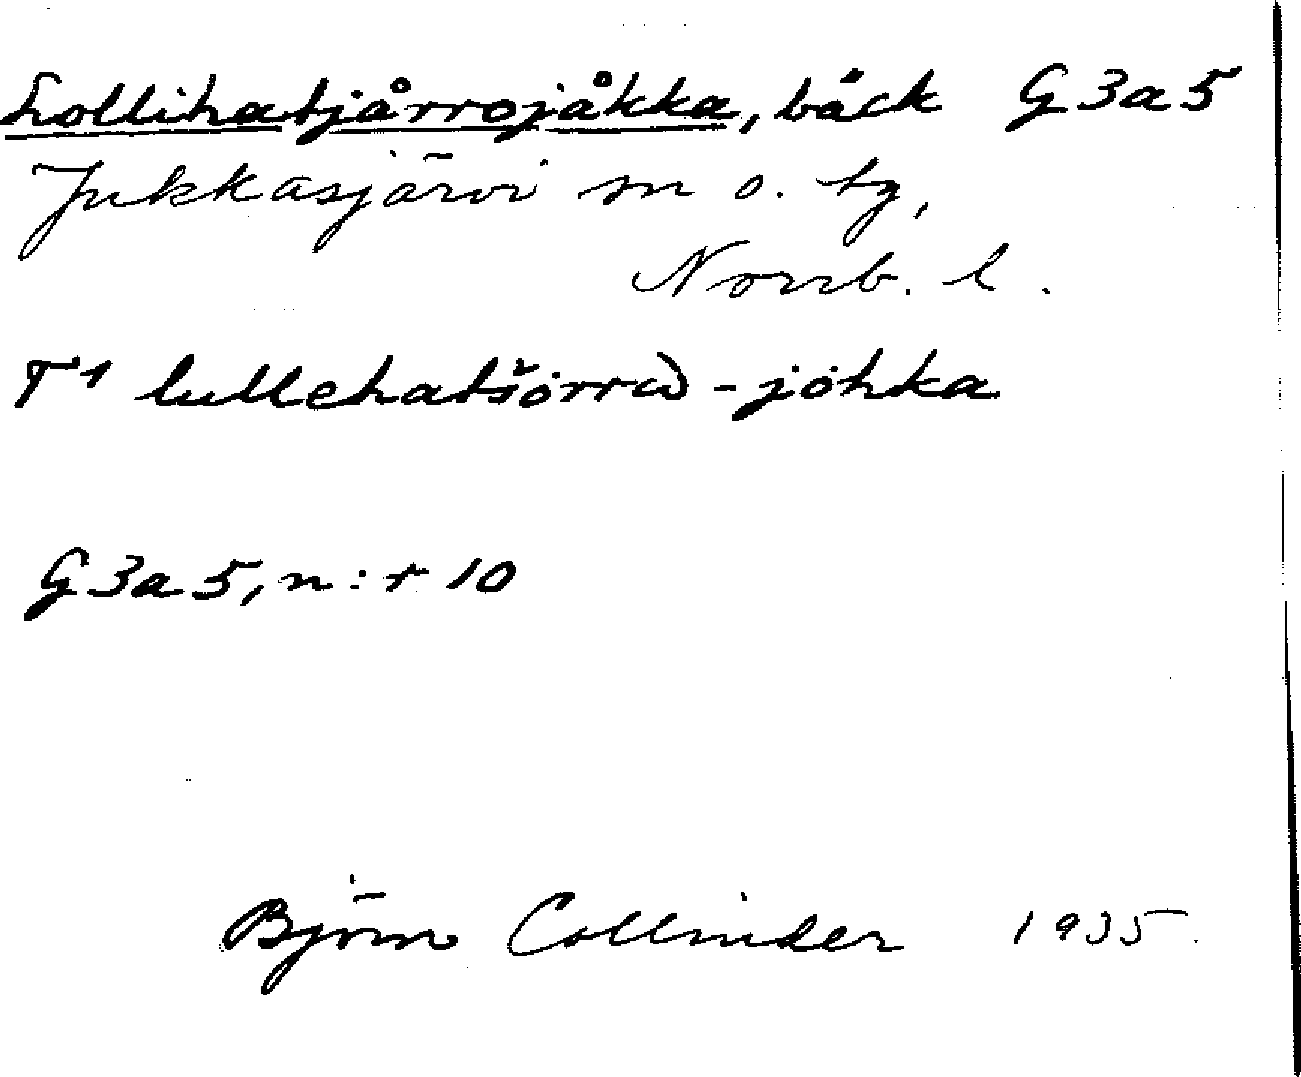 Lollihatjårrojåkka, bäck G3a5
Jukkasjärvi sn o. tg,
Norrb. l.
T1 lullehatšorrɷ-johka
G3a5, n:r 10
Björn Collinder 1935